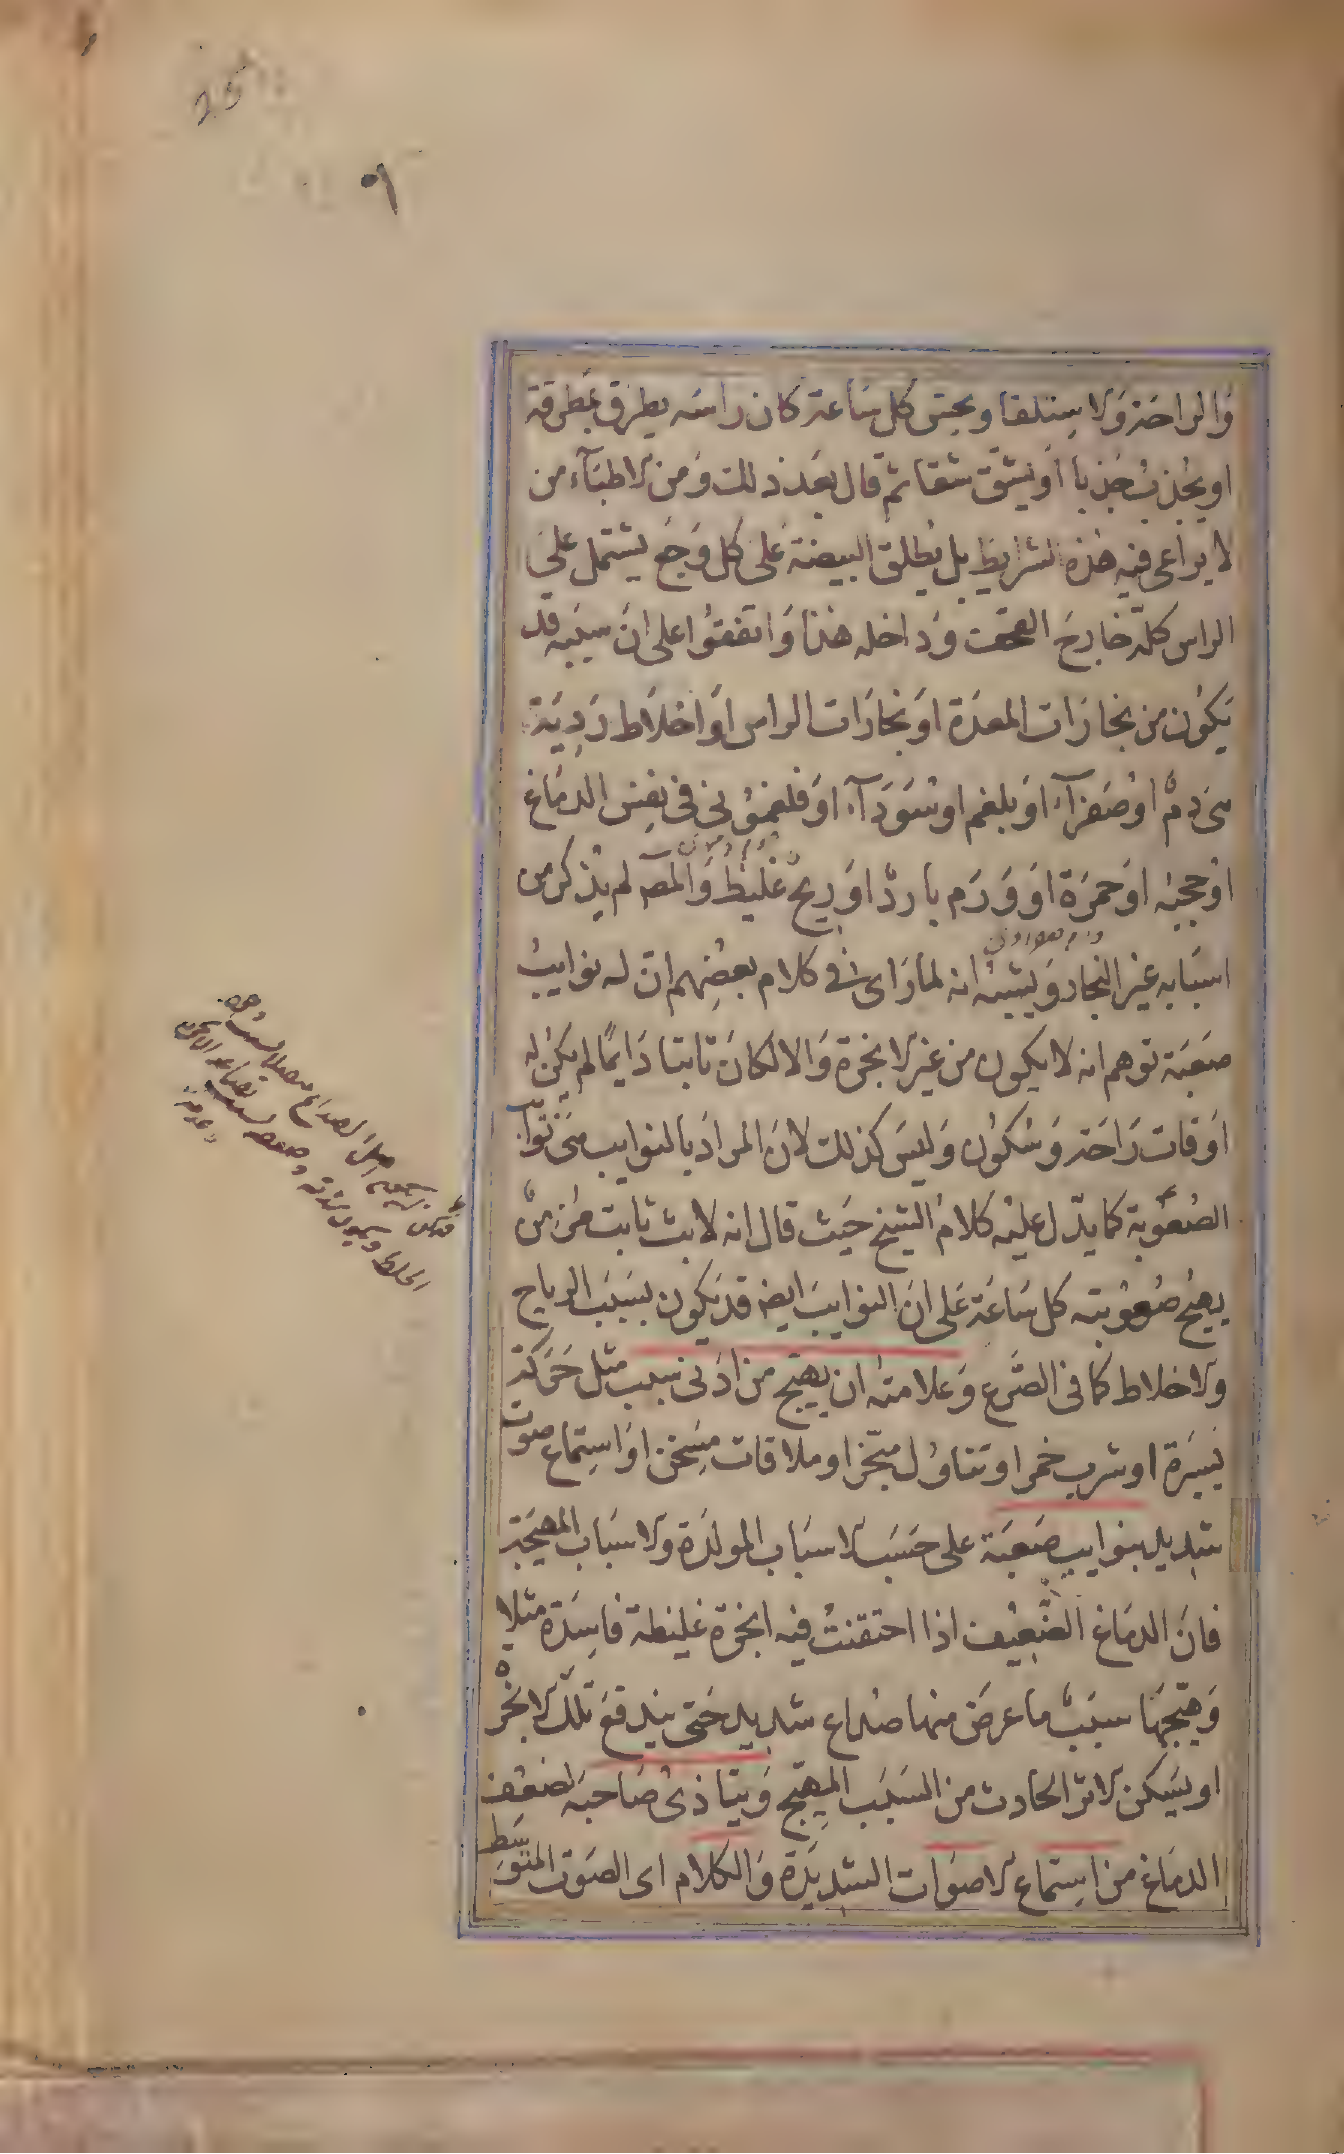 ٩
والراحة والاستلقا ويحس كل ساعة كان راسه يطرق بمطرقة
او يجذب جذبا او يشق شقا ثم قال بعد ذلك ومن الاطباء من
لا يراعى فيه هذه الشرايط بل يطلق البيضة على كل وجع يشتمل على
الراس كله خارج القحف وداخله هذا واتفقوا على ان سببه قد
يكون من بخارات المعدة او بخارات الراس او اخلاط ردية
من دم او صفراء او بلغم او سوداء او فلغمونى فى نفس الدماغ
او حجبه او حمرة او ورم بارد او ريح غليظ والمص لم يذكر من
اسبابه غير البخار ويشبه انه لما راى فى كلام بعضهم ان له نوايب
صعبة توهم انه لا يكون من غير الابخرة والا لكان ثابتا دايما لم يكن له
اوقات راحة وسكون وليس كذلك لان المراد بالنوايب هى نوايب
الصعوبة كما يدل عليه كلام الشيخ حيث قال انه لابث ثابت مزمن
يهيج صعوبته كل ساعة على ان النوايب ايضه قد يكون بسبب الرياح
والاخلاط كما فى الصرع وعلامته ان يهيج من ادنى سبب مثل حركة
يسيرة او شرب خمر او تناول مبخر او ملاقات مسخن او استماع صوت
شديد بنوايب صعبة على حسب الاسباب المولدة والاسباب المهيجة
فان الدماغ الضعيف اذا احتقنت فيه ابخرة غليظة فاسدة مثلا
وهيجها سبب ما عرض منها صداع شديد حتى يندفع تلك الابخرة
او يسكن الاثر الحادث من السبب المهيج ويتاذى صاحبه لضعف
الدماغ من استماع الاصوات الشديدة والكلام اى الصوت المتوسط